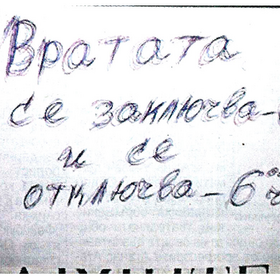 Вратата
се заключва-
и се
отключва-6⁰⁰ч